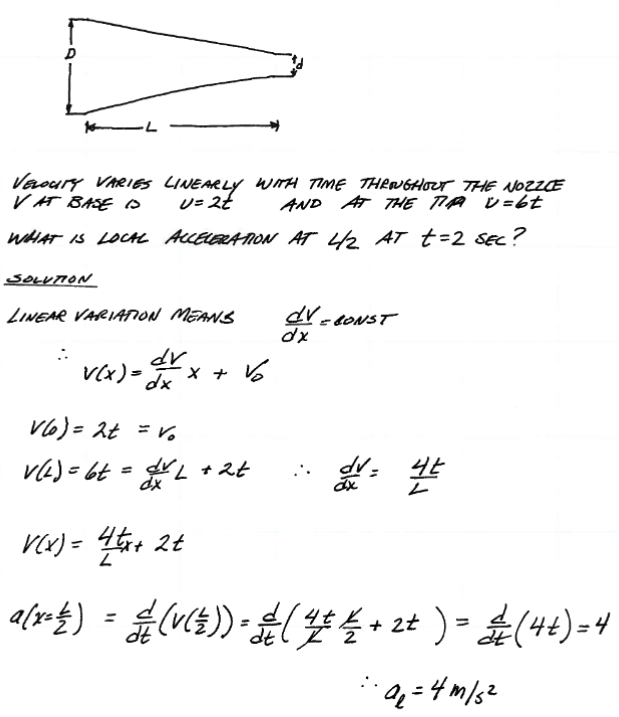 D
d
L
VELOCITY VARIES LINEARLY WITH TIME THROUGHOUT THE NOZZLE
V AT BASE IS U=2t AND AT THE TIP U=6t
WHAT IS LOCAL ACCELERATION AT L/2 AT t=2 SEC?
SOLUTION
LINEAR VARIATION MEANS dV/dx = CONST
∴ V(x) = dV/dx x + V₀
V(0) = 2t = V₀
V(L) = 6t = dV/dx L + 2t ∴ dV/dx = 4t/L
V(x) = 4t/L x + 2t
a(x=L/2) = d/dt (V(L/2)) = d/dt (4t/L L/2 + 2t) = d/dt (4t) = 4
∴ aₗ = 4 m/s²